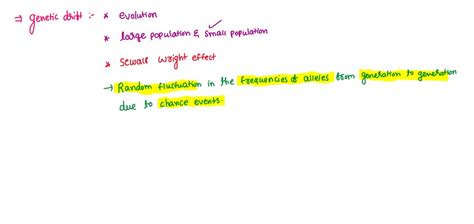 ⇒ genetic drift :- * evolution
* large population & small population ✓
* Sewall wright effect
→ Random fluctuation in the frequencies of alleles from generation to generation
due to chance events.